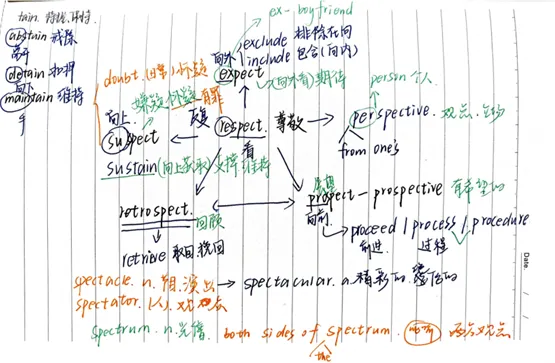 tain. 持续、保持
abstain 戒除
离开
detain 扣押
向下
maintain 维持
手
ex-boyfriend
向外
exclude 排除在向
include 包含(向内)
expect
(向外看)期待
doubt. (日常)怀疑
嫌疑 怀疑 有罪
向上
suspect
respect. 尊敬
看
person 个人
perspective. 观点、
from one's
sustain (向上获取) 支撑 维持
retrospect. 回顾
retrieve 取回, 挽回
prospect - prospective 有希望的
向前
proceed / process / procedure
前进 过程
spectacle. n. 节目, 演出 → spectacular. a. 精彩的. 壮观的
spectator. (人). 观众
spectrum. n. 光谱 both sides of spectrum. 两方观点
the
Date